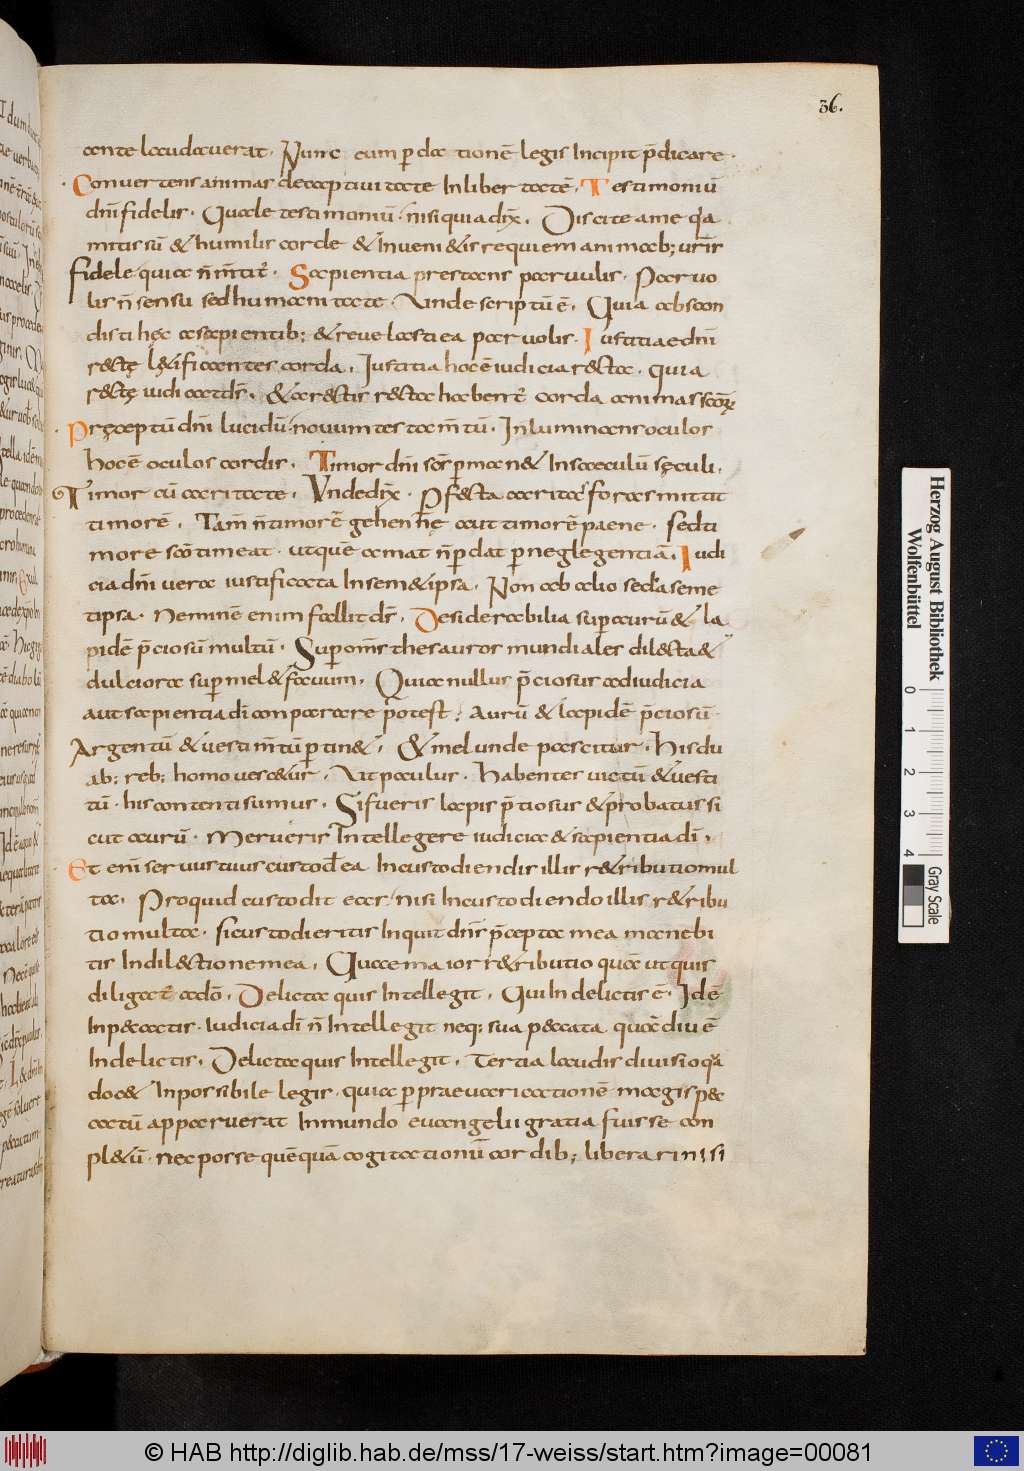 36.
ante laudauerat. Nunc eum p dac tionē legis Incipit p̄dicare.
Conuertens animas decaptiuitate Inlibertatē. Testimoniū
dn̄i fidelis. Quale testimoniū nisi quia dix̄. Discite ame q̄a
mitis sū & humilis corde & Inueni&is requiem animab; ur̄is
fidele quia n̄ m̄tit͛. Sapientia prestans paruulis. Paruo
lis n̄ sensu sed humanitate. Unde scriptū ē. Quia abscon
disti hęc asapientib; & reuelasti ea paruolis. Iustitiae dn̄i
r&tę l&ificantes corda. Iustitia hoc ē iudicia r&ta. quia
r&tę iudicat ds̄. & ar&tis r&ta habent͛ corda animas scōꝝ
Pręceptū dn̄i lucidū nouum testam̄tū. Inluminans oculos
hoc ē oculos cordis. Timor dn̄i sc̄s pman& Insaeculū sęculi.
Timor cū caritate. Unde dix̄. Pf&ta caritas foras mittit
timorē. Tam̄ n̄ timorē gehennę aut timorē paene. sed ti
more scō timeat. ut quē amat n̄ pdat p neglegentiā. Iudi
cia dn̄i uera iustificata Insem&ipsa. Non ab alio sed a seme
tipsa. Neminē enim fallit ds̄. Desiderabilia sup aurū & la
pidē p̄ciosū multū. Sup om̄s thesauros mundiales dil&ta &
dulciora sup mel & fauum. Quia nullus p̄ciosus ad iudicia
aut sapientia dī conparare p̄otest. Aurū & lapidē p̄ciosū
Argentū & uestim̄tū ptin&. & mel unde pascitur. His du
ab; reb; homo uesc&ur. Ut paulus. Habentes uictū & uesti
tū. his contenti sumus. Si fueris lapis p̄tiosus & probatus si
cut aurū. Merueris Intellegere iudicia & sapientia dī.
Et enī seruus tuus custod̄ ea Incustodiendis illis r&ributio mul
ta. Pro quid custodit eas. nisi Incustodiendo illis r&ribu
tio multa. si custodieritis Inquit dn̄s p̄cepta mea manebi
tis Indil&tione mea. Quae maior r&ributio quā ut quis
diligat͛ adō. Delicta quis Intellegit. Qui In delictis ē. Idē
Inp&catis. Iudicia dī n̄ Intellegit neq; sua p&cata quādiu ē
Indelictis. Delicta quis Intellegit. Tertia laudis diuisio q̄a
doc& Inposibile legis. quia p praeuaricationē magis p&c
catū apparuerat Inmundo euangelii gratia fuisse con
pl&ū. nec posse quēquā cogitationū cordib; liberari nisi
Herzog August Bibliothek
Wolfenbüttel
0 1 2 3 4
Gray Scale
© HAB http://diglib.hab.de/mss/17-weiss/start.htm?image=00081